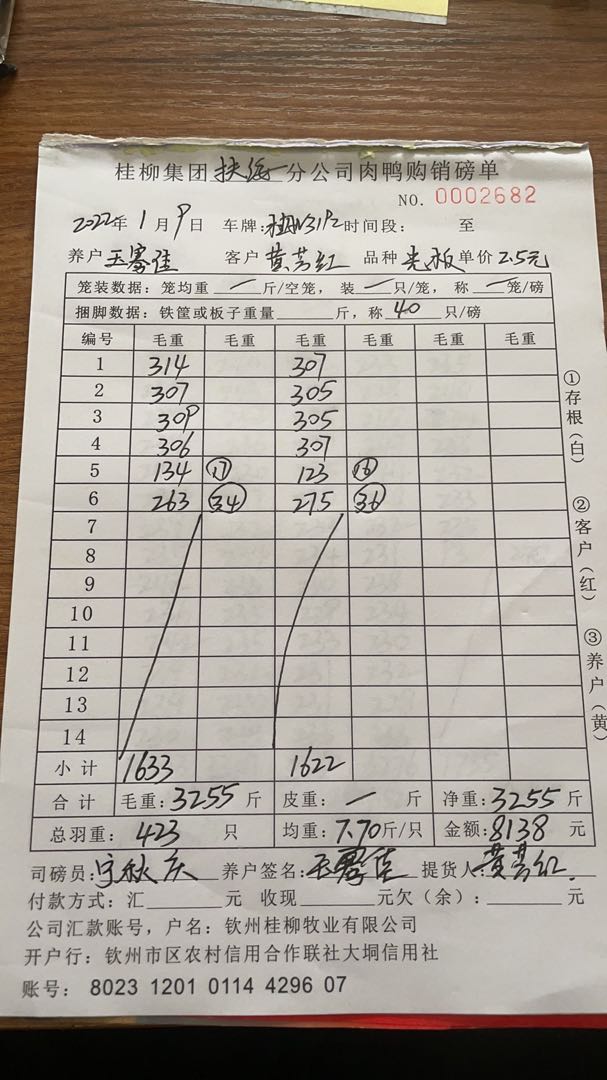 桂柳集团扶绥分公司肉鸭购销磅单
NO. 0002682
2022年 1月 9日 车牌: 时间段: 至
养户 客户 黄芳红 品种 光板 单价 2.5元
笼装数据: 笼均重 一 斤/空笼, 装 一 只/笼, 称 一 笼/磅
捆脚数据: 铁筐或板子重量 斤, 称 40 只/磅
编号 毛重 毛重 毛重 毛重 毛重 毛重
1 314 307
2 307 305
3 309 305
4 306 307
5 134 17 123 16
6 263 34 275 36
7
8
9
10
11
12
13
14
小计 1633 1622
合计 毛重: 3255 斤 皮重: 一 斤 净重: 3255 斤
总羽重: 423 只 均重: 7.70斤/只 金额: 8138 元
司磅员: 养户签名: 提货人: 黄芳红
付款方式: 汇 元 收现 元欠(余): 元
公司汇款账号, 户名: 钦州桂柳牧业有限公司
开户行: 钦州市区农村信用合作联社大垌信用社
账号: 8023 1201 0114 4296 07
①存根(白)
②客户(红)
③养户(黄)